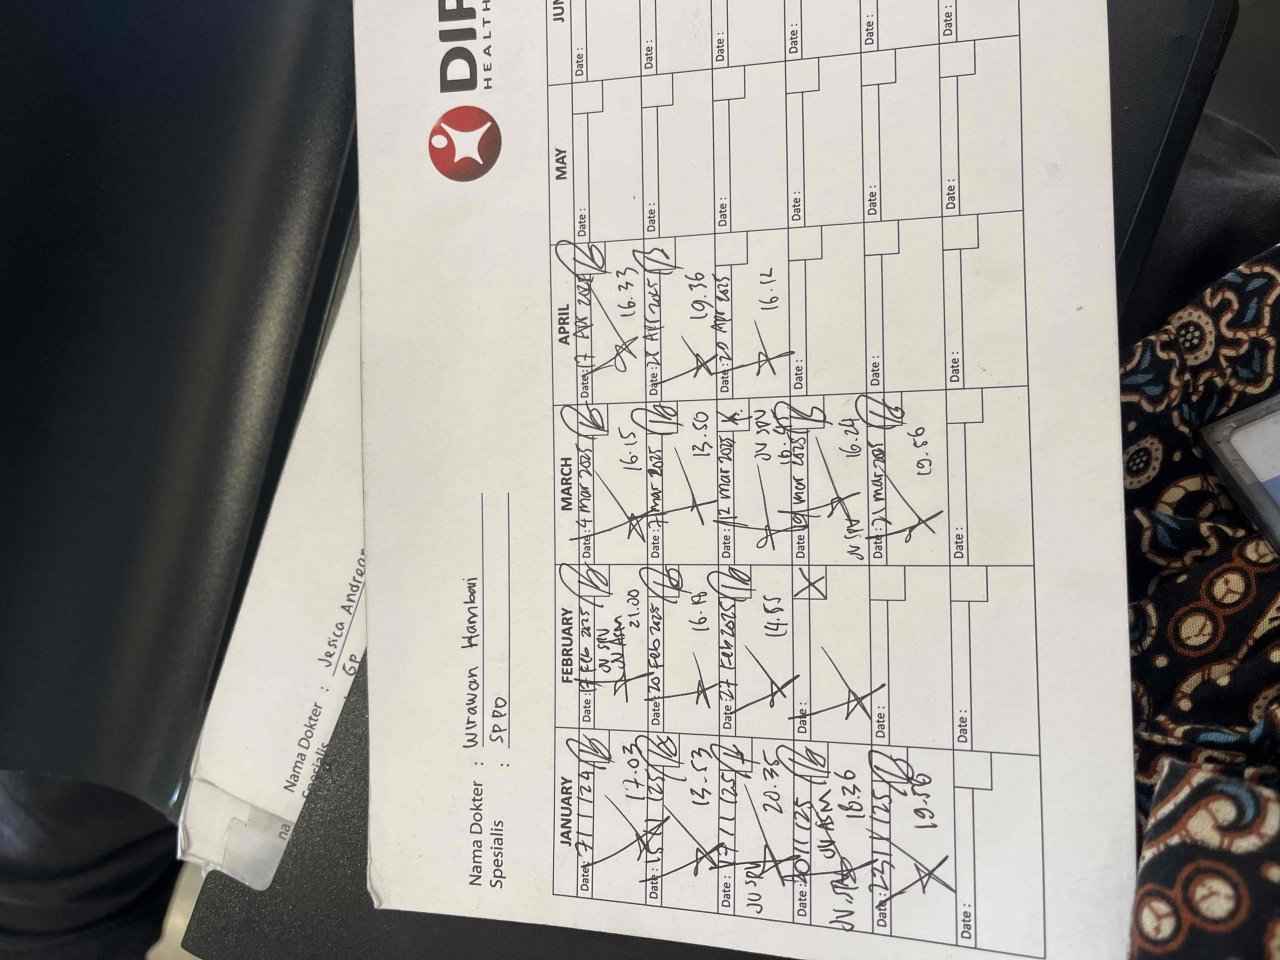 DIP
HEALTH
Nama Dokter : Wirawan Hambari
Spesialis : SPPD
JANUARY
Date: 7/1/24
17.03
Date: 15/1/25
13.53
Date: 17/1/25
JV SPV
20.35
Date: 20/1/25
JV ASM
18.36
Date: 23/1/25
19.56
Date:
FEBRUARY
Date: 17 Feb 2025
JV SPV
JV ASM
21.00
Date: 20 Feb 2025
16.18
Date: 27 Feb 2025
14.55
Date:
Date:
Date:
MARCH
Date: 4 mar 2025
16.15
Date: 7 mar 2025
13.50
Date: 12 mar 2025
JV SPV
Date: 19 mar 2025
JV SPV
16.24
Date: 21 mar 2025
19.56
Date:
APRIL
Date: 17 Apr 2025
16.33
Date: Apr 2025
19.36
Date: Apr 2025
16.12
Date:
Date:
Date:
MAY
Date:
Date:
Date:
Date:
Date:
Date:
JUN
Date:
Date:
Date:
Date:
Date:
Date:
Nama Dokter : Jesica Andrean
Spesialis GP
na